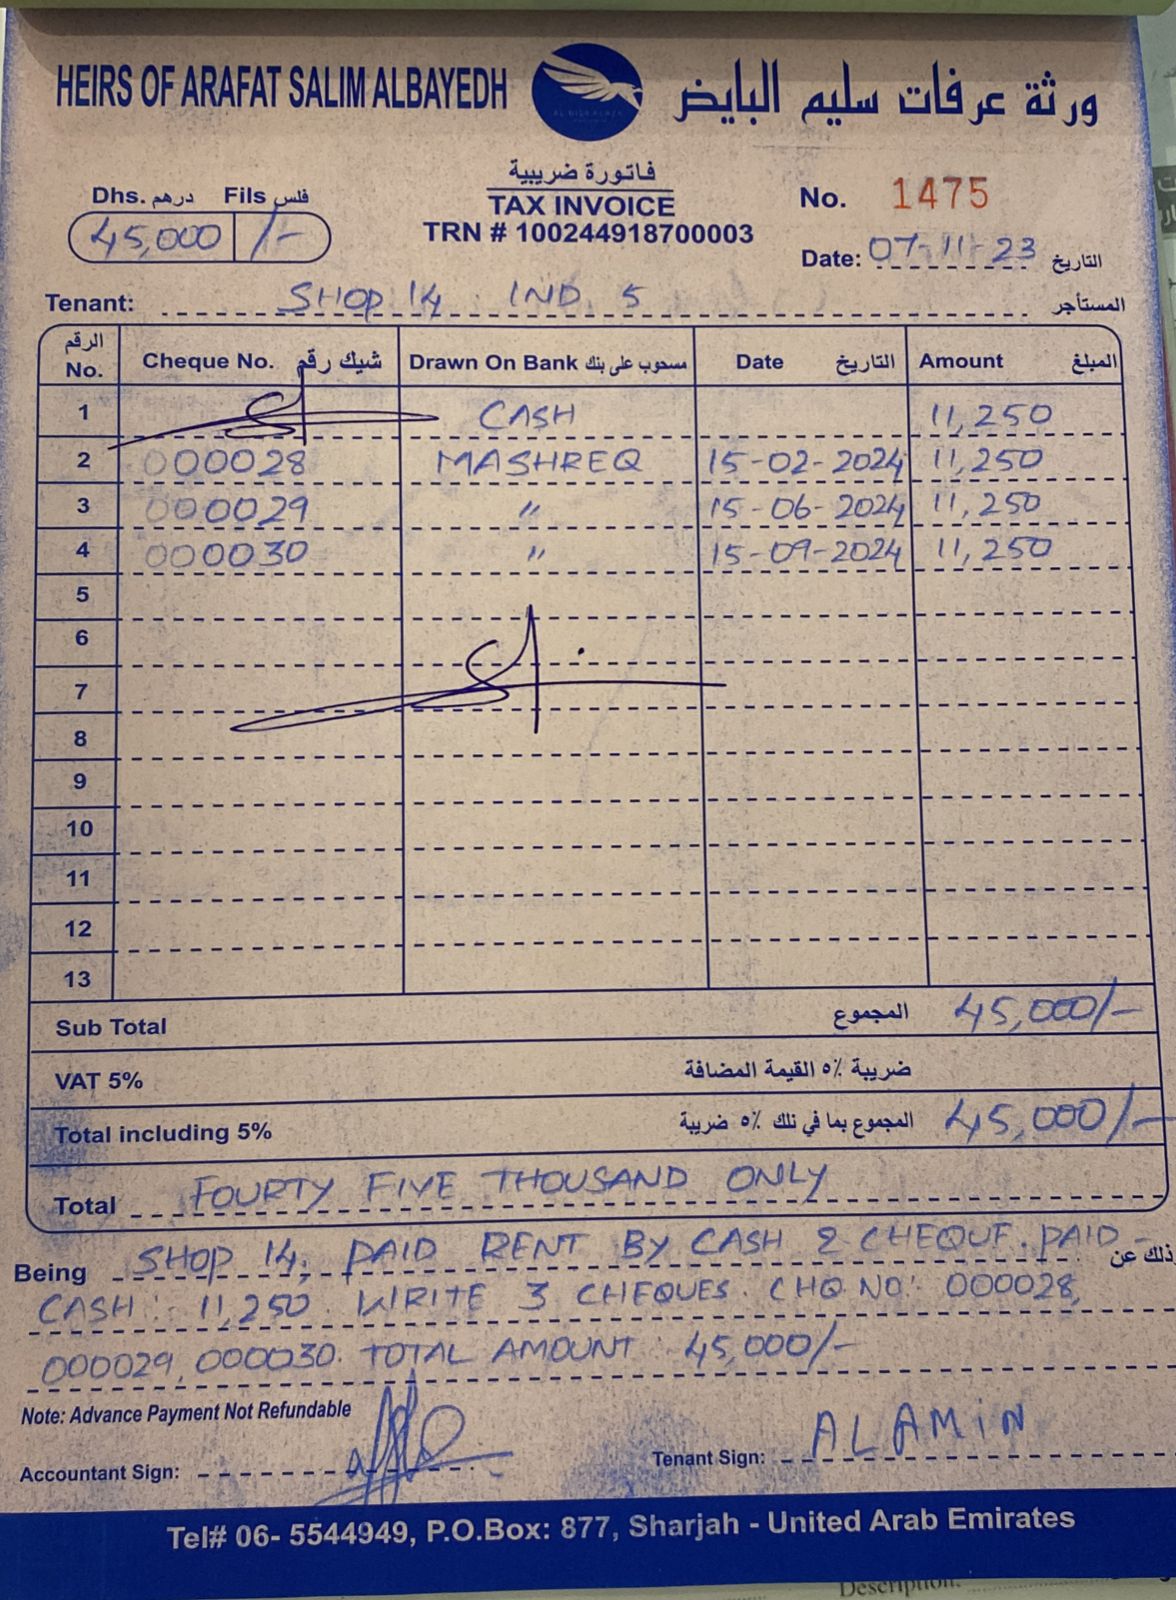 HEIRS OF ARAFAT SALIM ALBAYEDH ورثة عرفات سليم البايض
فاتورة ضريبية
TAX INVOICE
TRN # 100244918700003
Dhs. درهم Fils فلس
45,000 /-
No. 1475
Date: 07-11-23 التاريخ
Tenant: SHOP 14 IND 5 المستأجر
الرقم No. Cheque No. شيك رقم Drawn On Bank مسحوب على بنك Date التاريخ Amount المبلغ
1 CASH 11,250
2 000028 MASHREQ 15-02-2024 11,250
3 000029 " 15-06-2024 11,250
4 000030 " 15-09-2024 11,250
5
6
7
8
9
10
11
12
13
Sub Total المجموع 45,000/-
VAT 5% ضريبة ٥٪ القيمة المضافة
Total including 5% المجموع بما في تلك ٥٪ ضريبة 45,000/-
Total FOURTY FIVE THOUSAND ONLY
Being SHOP 14, PAID RENT BY CASH & CHEQUE. PAID - ذلك عن
CASH: 11,250. WRITE 3 CHEQUES. CHQ NO: 000028,
000029, 000030. TOTAL AMOUNT: 45,000/-
Note: Advance Payment Not Refundable
Accountant Sign:
Tenant Sign: ALAMIN
Tel# 06- 5544949, P.O.Box: 877, Sharjah - United Arab Emirates
Description: